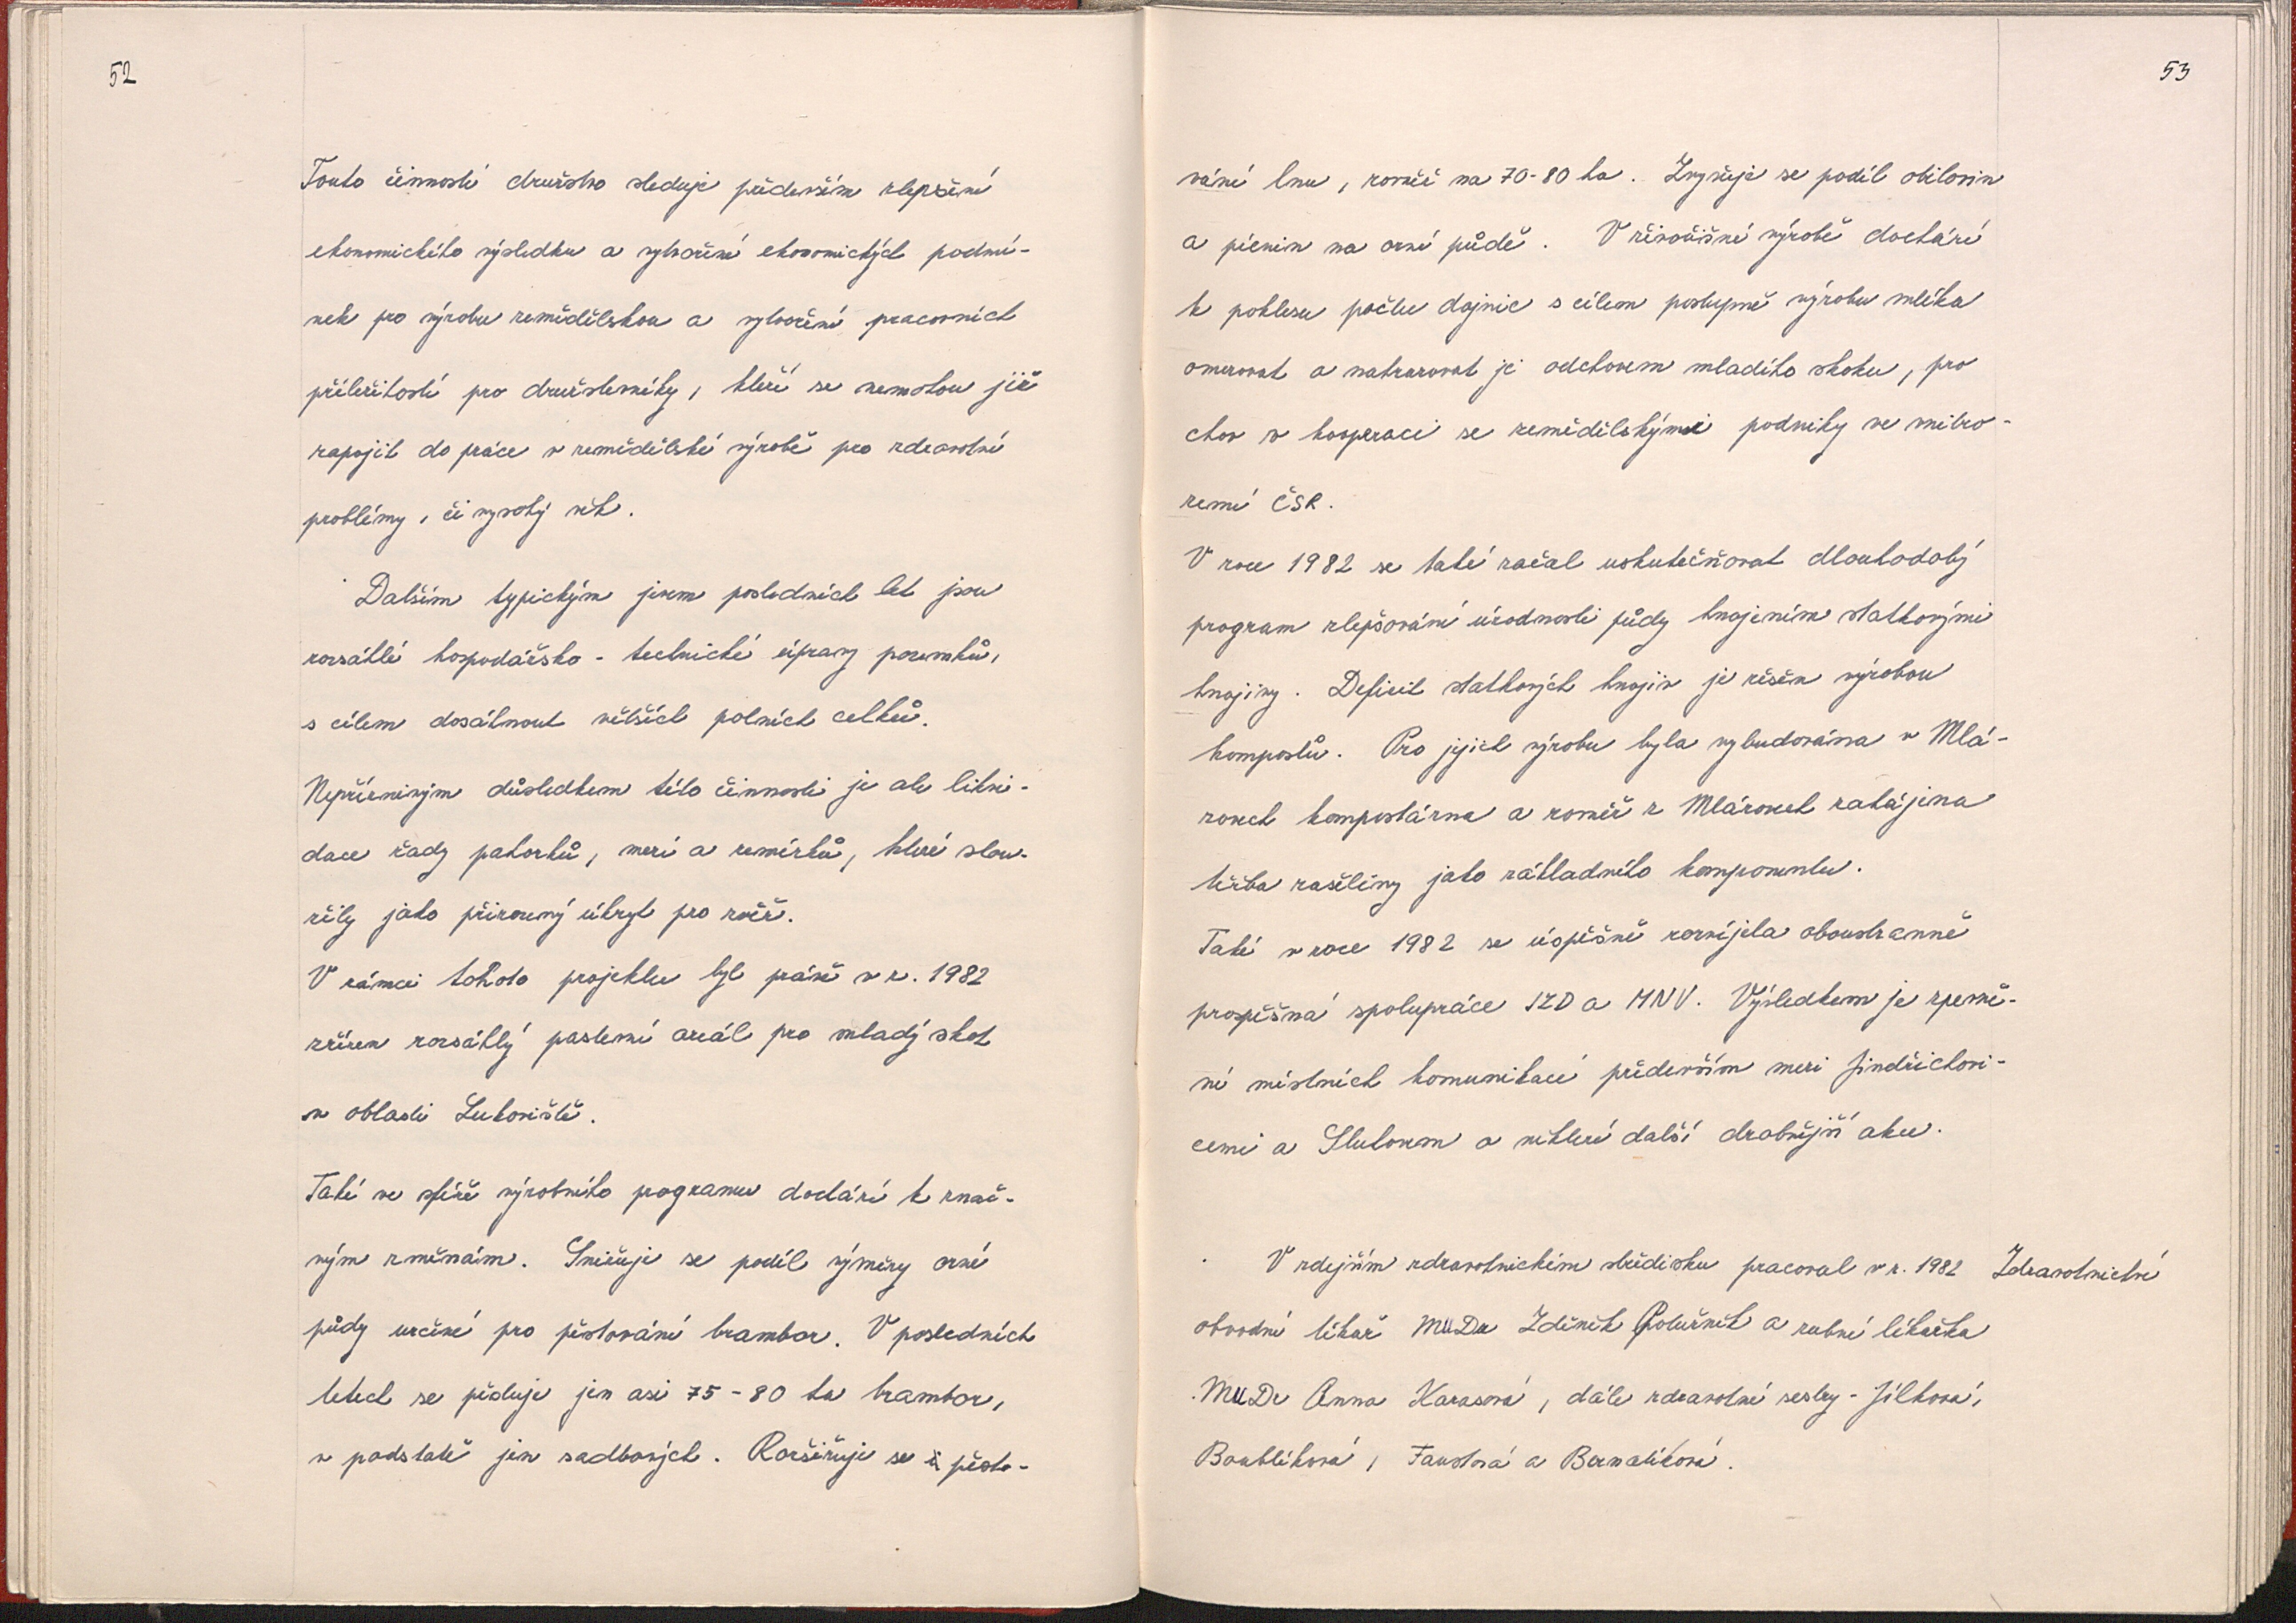 52
Touto činností družstvo sleduje především zlepšení
ekonomického výsledku a vytvoření ekonomických podmí-
nek pro výrobu zemědělskou a vytvoření pracovních
příležitostí pro družstevníky, kteří se nemohou již
zapojit do práce v zemědělské výrobě pro zdravotní
problémy, či vysoký věk.
Dalším typickým jevem posledních let jsou
rozsáhlé hospodářsko - technické úpravy pozemků,
s cílem dosáhnout větších polních celků.
Nepříznivým důsledkem této činnosti je ale likvi-
dace řady pahorků, mezí a remízků, které slou-
žily jako přirozený úkryt pro zvěř.
V rámci tohoto projektu byl právě v r. 1982
zřízen rozsáhlý pastevní areál pro mladý skot
v oblasti Lukoviště.
Také ve sféře výrobního programu dochází k znač-
ným změnám. Snižuje se podíl výměry orné
půdy určené pro pěstování brambor. V posledních
letech se pěstuje jen asi 75 - 80 ha brambor,
v podstatě jen sadbových. Rozšiřuje se i pěsto-
53
vání lnu, rovněž na 70-80 ha. Zvyšuje se podíl obilovin
a pícnin na orné půdě. V živočišné výrobě dochází
k poklesu počtu dojnic s cílem postupně výrobu mléka
omezovat a nahrazovat je odchovem mladého skotu, pro
chov v kooperaci se zemědělskými podniky ve vnitro-
zemí ČSR.
V roce 1982 se také začal uskutečňovat dlouhodobý
program zlepšování úrodnosti půdy hnojením statkovými
hnojivy. Deficit statkových hnojiv je řešen výrobou
kompostů. Pro jejich výrobu byla vybudována v Mlá-
zovech kompostárna a rovněž z Mlázovech zahájena
těžba rašeliny jako základního komponentu.
Také v roce 1982 se úspěšně rozvíjela oboustranně
prospěšná spolupráce JZD a MNV. Výsledkem je zpevně-
ní místních komunikací především mezi Jindřichovi-
cemi a Sluhovem a některé další drobnější akce.
V zdejším zdravotnickém středisku pracoval v r. 1982 Zdravotnictví
obvodní lékař MUDr Zdeněk Polužník a zubní lékařka
MUDr Anna Karasová, dále zdravotní sestry - Jílková,
Boublíková, Faustová a Bernatíková.